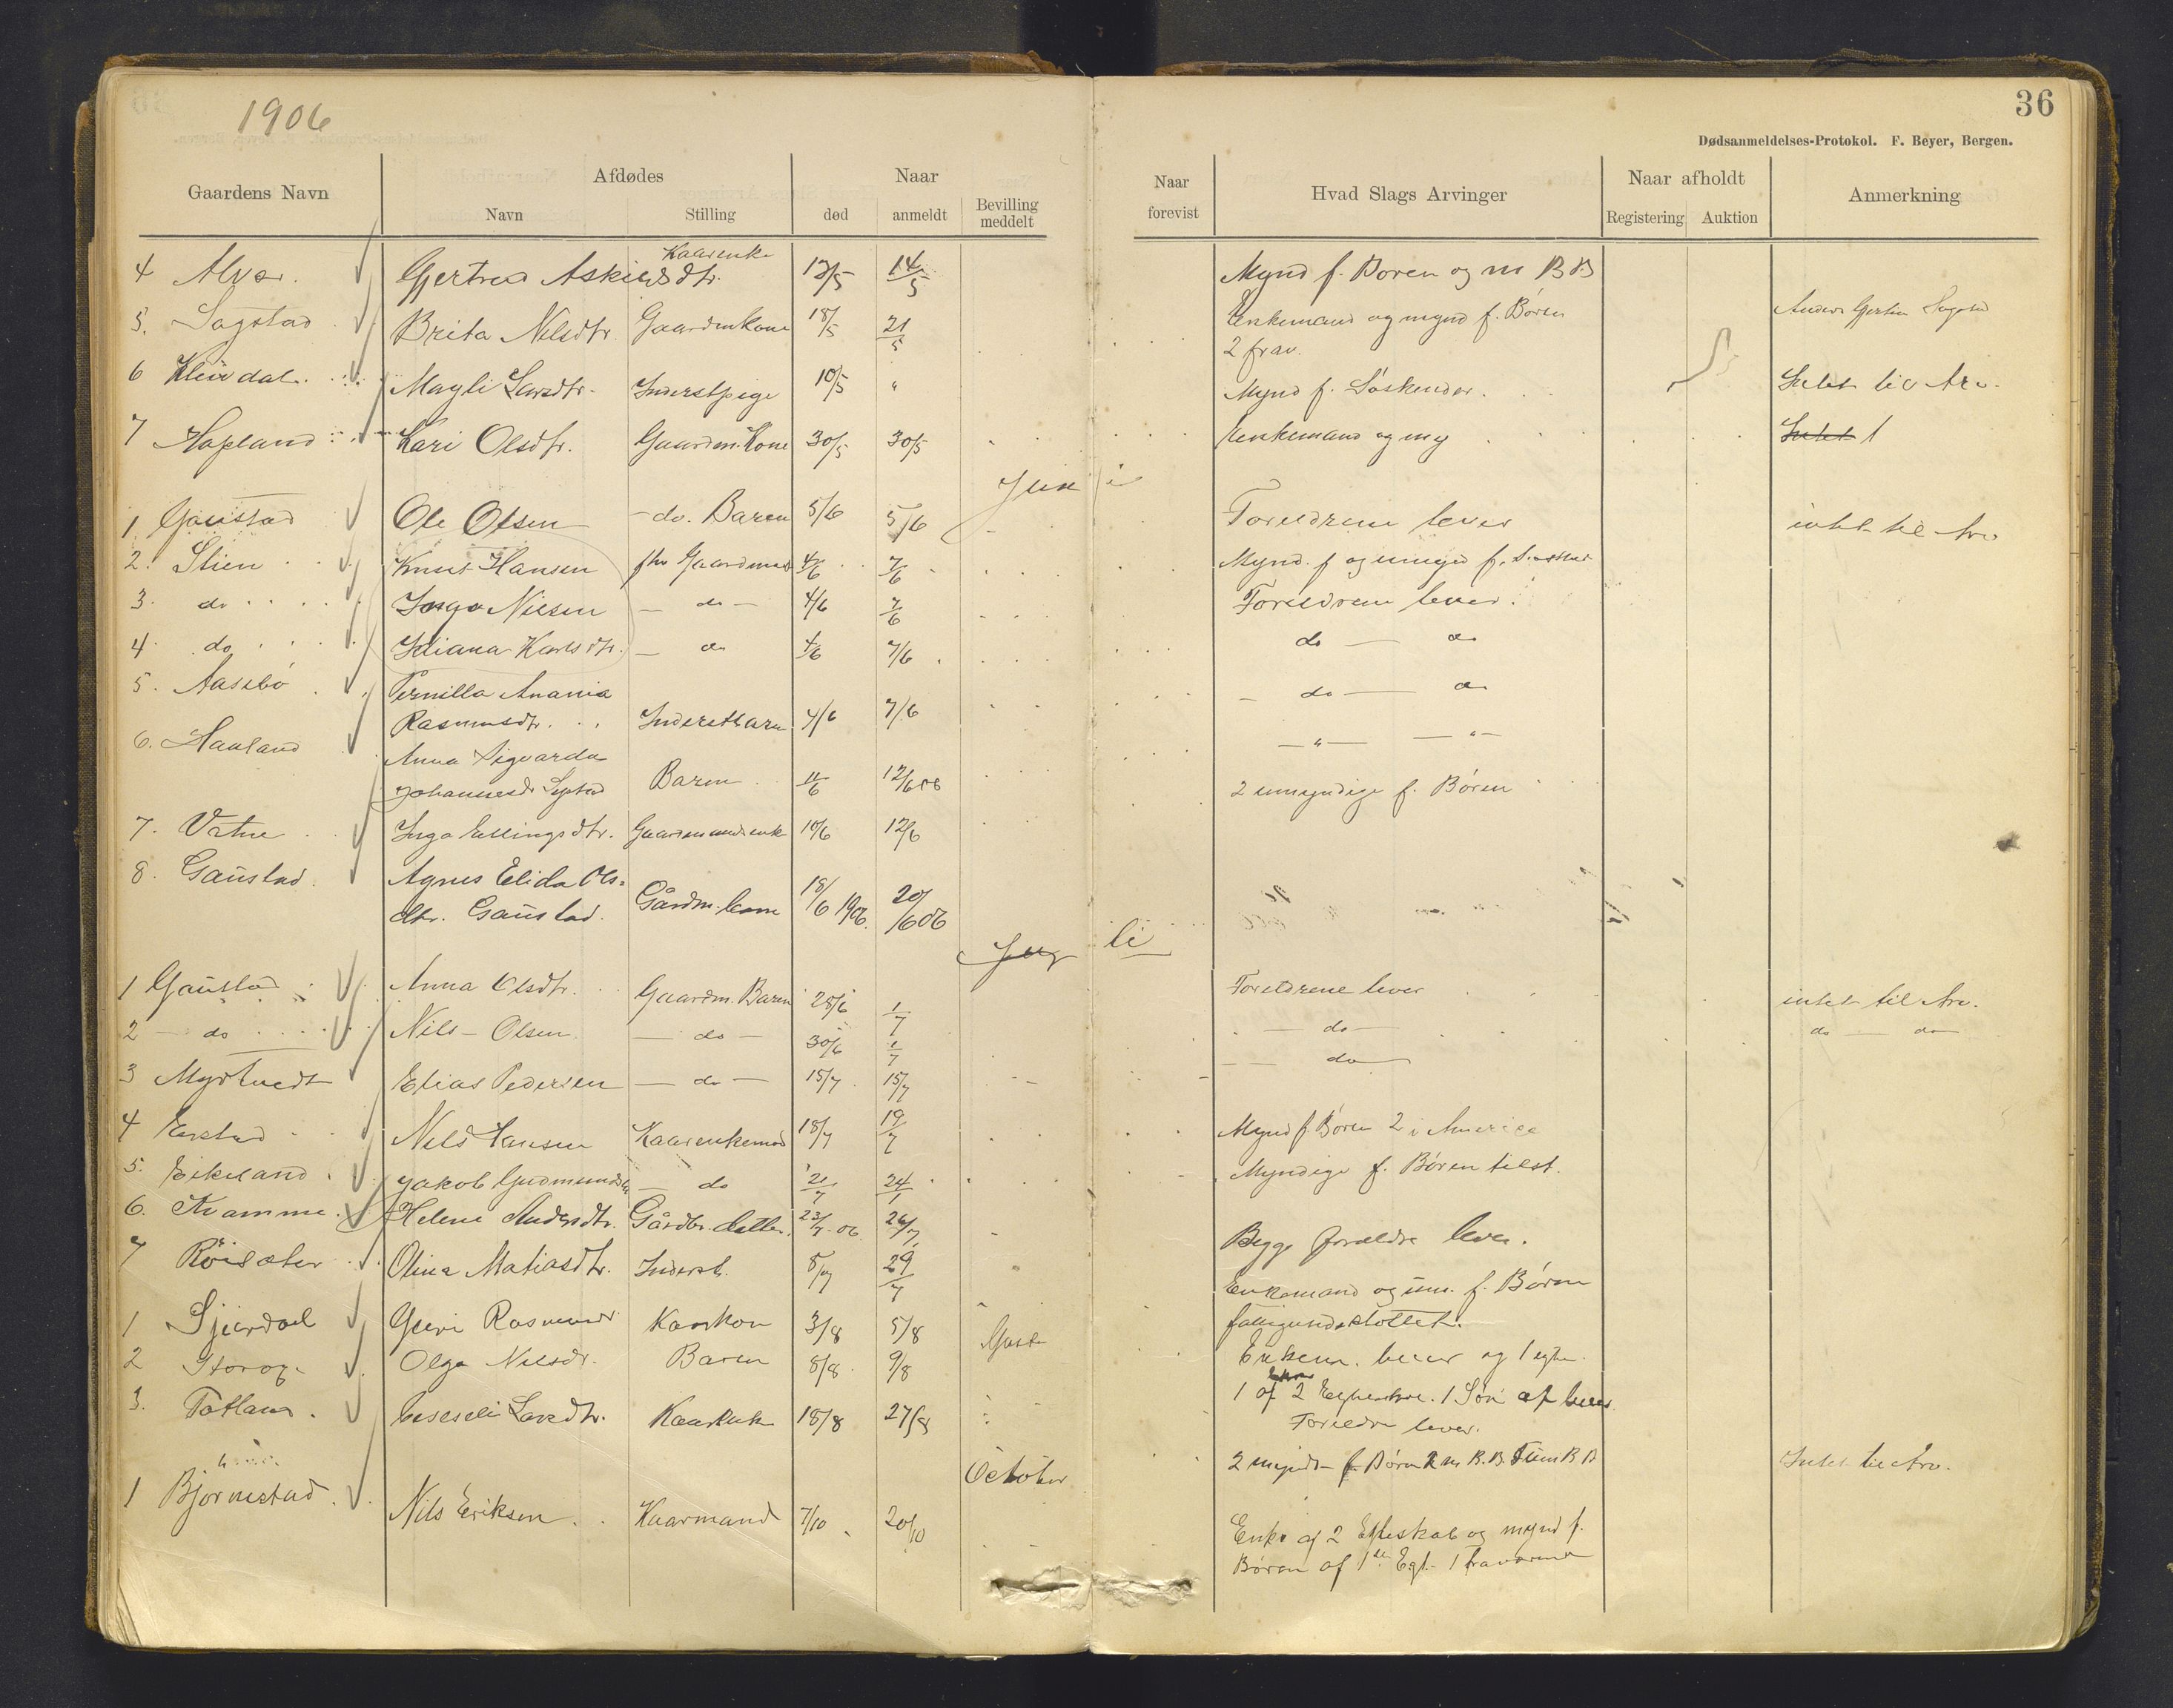 1906
36
Dødsanmeldelses-Protokol. F. Beyer, Bergen.
Gaardens Navn
Afdødes
Navn
Stilling
Naar
død
anmeldt
Bevilling meddelt
Naar forevist
Hvad Slags Arvinger
Naar afholdt
Registering
Auktion
Anmerkning
4 Alver. Gjertrud Askilsdtr. Kaarenke 12/5 14/5 Mynd f. Børen og m BB
5. Sagstad Brita Nilsdtr. Gaardmkone 18/5 21/5 Enkemand og mynd f. Børen Anders Gjertsen Sagstad
2 frav.
6 Kleivdal Magli Larsdtr. Inderstpige 10/5 " Mynd f. Söskender. Intet til Arv.
7 Hopland Kari Olsdtr. Gaardm. Kone 30/5 30/5 Enkemand og my Intet 1
Juni
1 Gaustad Ole Olsen do. Baren 5/6 5/6 Foreldrene lever intet til Arv
2. Stien Knut Hansen fhv Gaardmand 4/6 7/6 Mynd. f og umynd f.
3. do Inga Nilsen do 4/6 7/6 Foreldrene lever.
4. do Karlsdtr. do 4/6 7/6 do do
5. Aasebø Pernilla Anania
Rasmusdtr. Inderstbarn 4/6 7/6 do do
6. Hauland Anna Sigvarda
Johannesdr Baren 11/6 12/6 06 " "
7. Vatne Inga Ellingsdtr. Gaardmandsenk 10/6 12/6 2 umyndige f. Børen
8. Gaustad. Agnes Elida Ols-
dtr. Gaustad. Gårdm. barn 18/6 1906. 20/6 06
Juli
1 Gaustad Anna Olsdtr. Gaardm. Baren 28/6 1/7 Foreldrene lever intet til Arv.
2 do Nils Olsen do 30/6 1/7 do do do
3 Myrtvedt Elias Pedersen do 15/7 15/7 do
4 Erstad Nils Hansen Kaarenkemand 18/7 19/7 Mynd f. Børen 2 i America
5. Eikeland Jakob Gudmunds do 21/7 24/ Myndige f. Børen tilst.
6. Kvamme Helene Andersdtr. Gårdbr. datter. 23/7 - 06 26/7 Begge foreldre lever.
7 Röisæter Olina Matiasdtr. Inderst. 8/7 29/7 Enkemand og um. f. Børen
fattigunderstöttet.
1 Rasmusdr Kaarkon 3/8 5/8 Gust Enkem. lever og 1
2 Storog Olga Nilsdr. Baren 8/8 9/8 1 af 2 1 Søn af lever
Foreldre lever.
3. Totland Larsdtr. Kaarenk 18/8 27/8 2 mynd f. Børn 2 m B.B. 7 um B B Intet til Arv.
October
1 Bjørnestad Nils Eriksen Kaarmand 7/10 20/10 Enke af 2 Egteskab og mynd f.
Børen af 1ste Egt. 1 fraværende